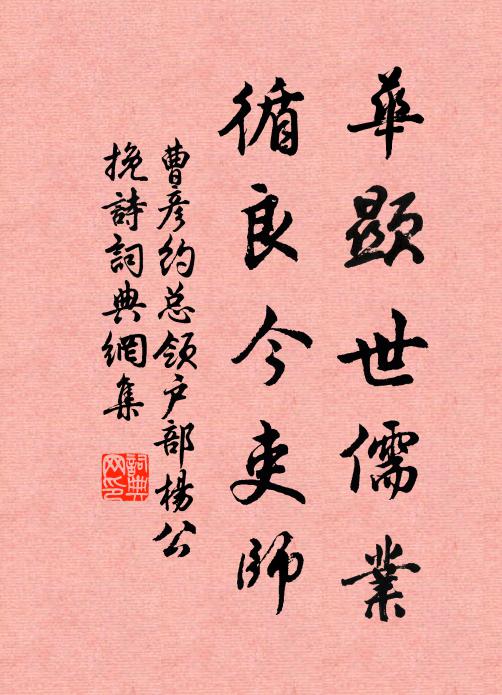 華顯世儒業
循良今吏師
曹彦約总領户部楊公
挽詩詞典網集
詞典网印